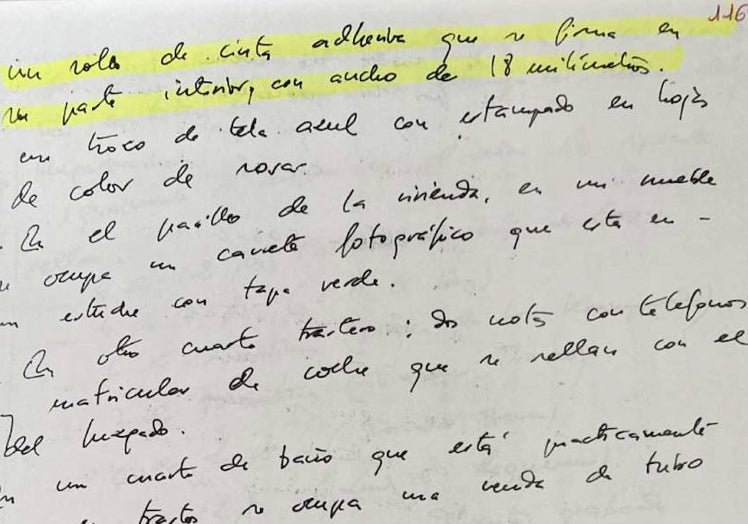 116
un rollo de cinta adhesiva que se firma en
su parte interior, con ancho de 18 milímetros.
un trozo de tela azul con estampado en hojas
de color de rosas.
En el pasillo de la vivienda, en un mueble
se ocupa un carrete fotográfico que está en -
un estuche con tapa verde.
En otro cuarto trastero: dos notas con teléfonos
matriculas de coche que se sellan con el
del Juzgado.
En un cuarto de baño que está practicamente
trastos se ocupa una venda de tubo